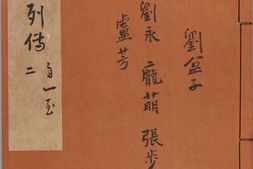 劉盆子
劉永 龐萌 張步
盧芳
自一至
列傳 二